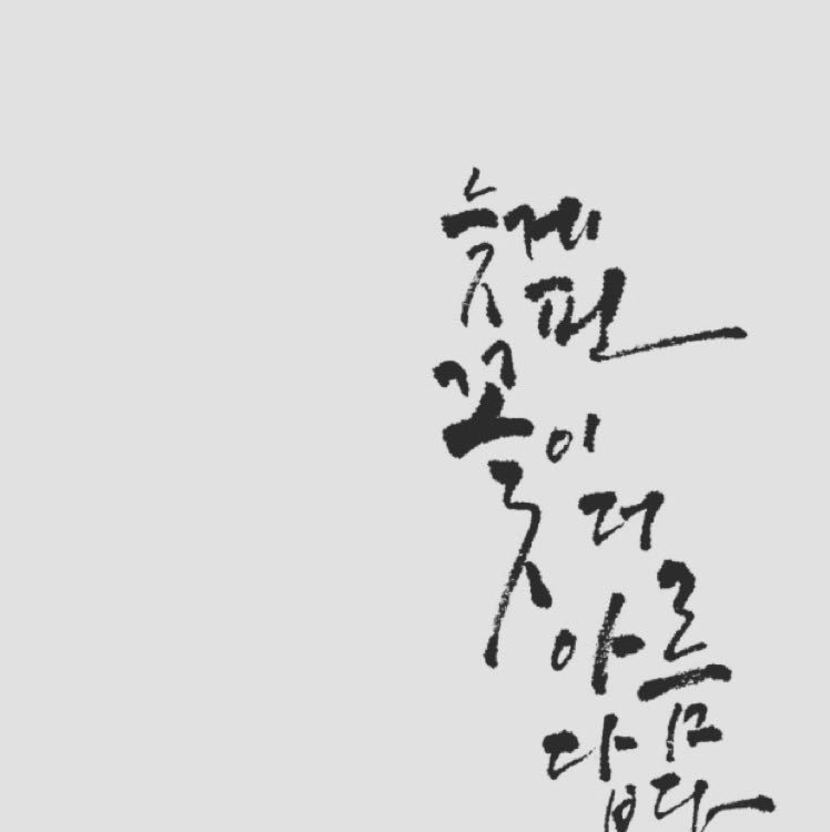 늦게
핀
꽃이
더
아름
답다